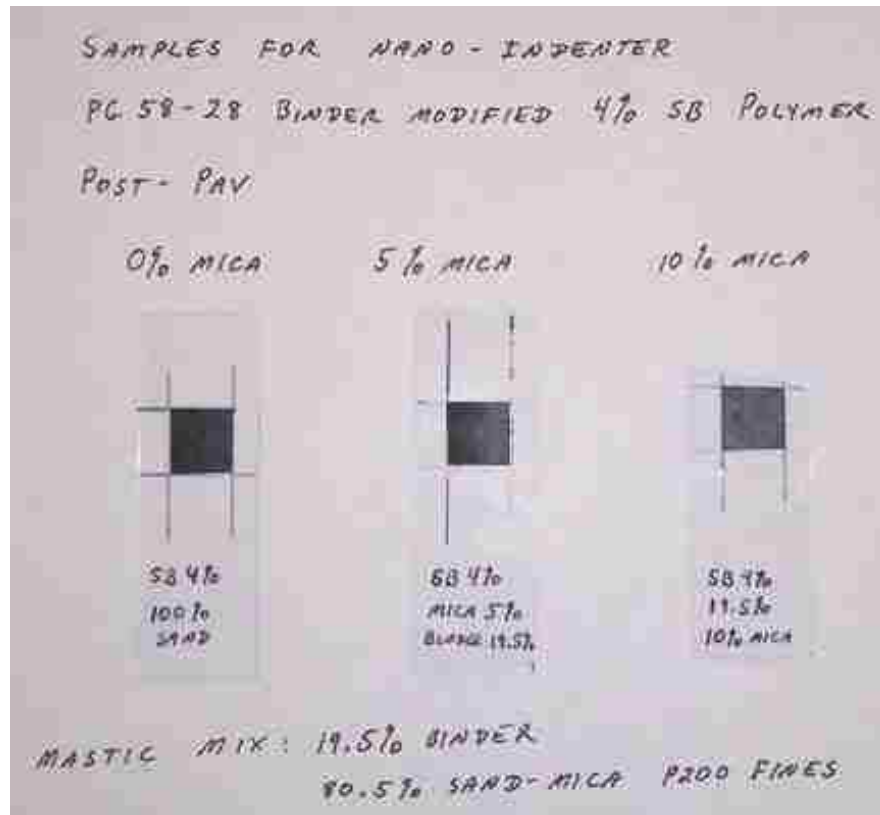 SAMPLES FOR NANO-INDENTER
PG 58-28 BINDER MODIFIED 4% SB POLYMER
POST-PAV
0% MICA 5% MICA 10% MICA
SB 4%
100%
SAND
SB 4%
MICA 5%
19.5%
SB 4%
19.5%
10% MICA
MASTIC MIX: 19.5% BINDER
80.5% SAND-MICA P200 FINES